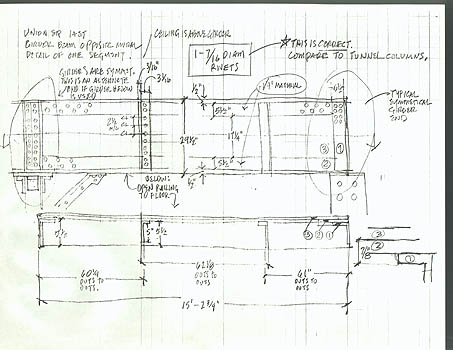 UNION SQ LAST
GIRDER BEAM OPPOSITE MURAL
DETAIL OF ONE SEGMENT.
CEILING IS ABOVE GIRDER
1-7/16 DIAM
RIVETS
THIS IS CORRECT.
COMPARE TO TUNNEL COLUMNS.
GIRDERS ARE SYMMT.
THIS IS AN ALTERNATE
END IF GIRDER BELOW
IS USED
3/16"
3 3/16
1/2"
MATERIAL
5 1/2"
TYPICAL
SYMMETRICAL
GIRDER
END
29 1/2"
5 1/2"
3
1
BELOW:
OPEN RAILING
TO FLOOR
5"
5 1/2
3
2
1
3
2
7/8
1
OUTS TO
OUTS.
OUTS TO
OUTS
61"
OUTS TO
OUTS
15'-2 3/4"